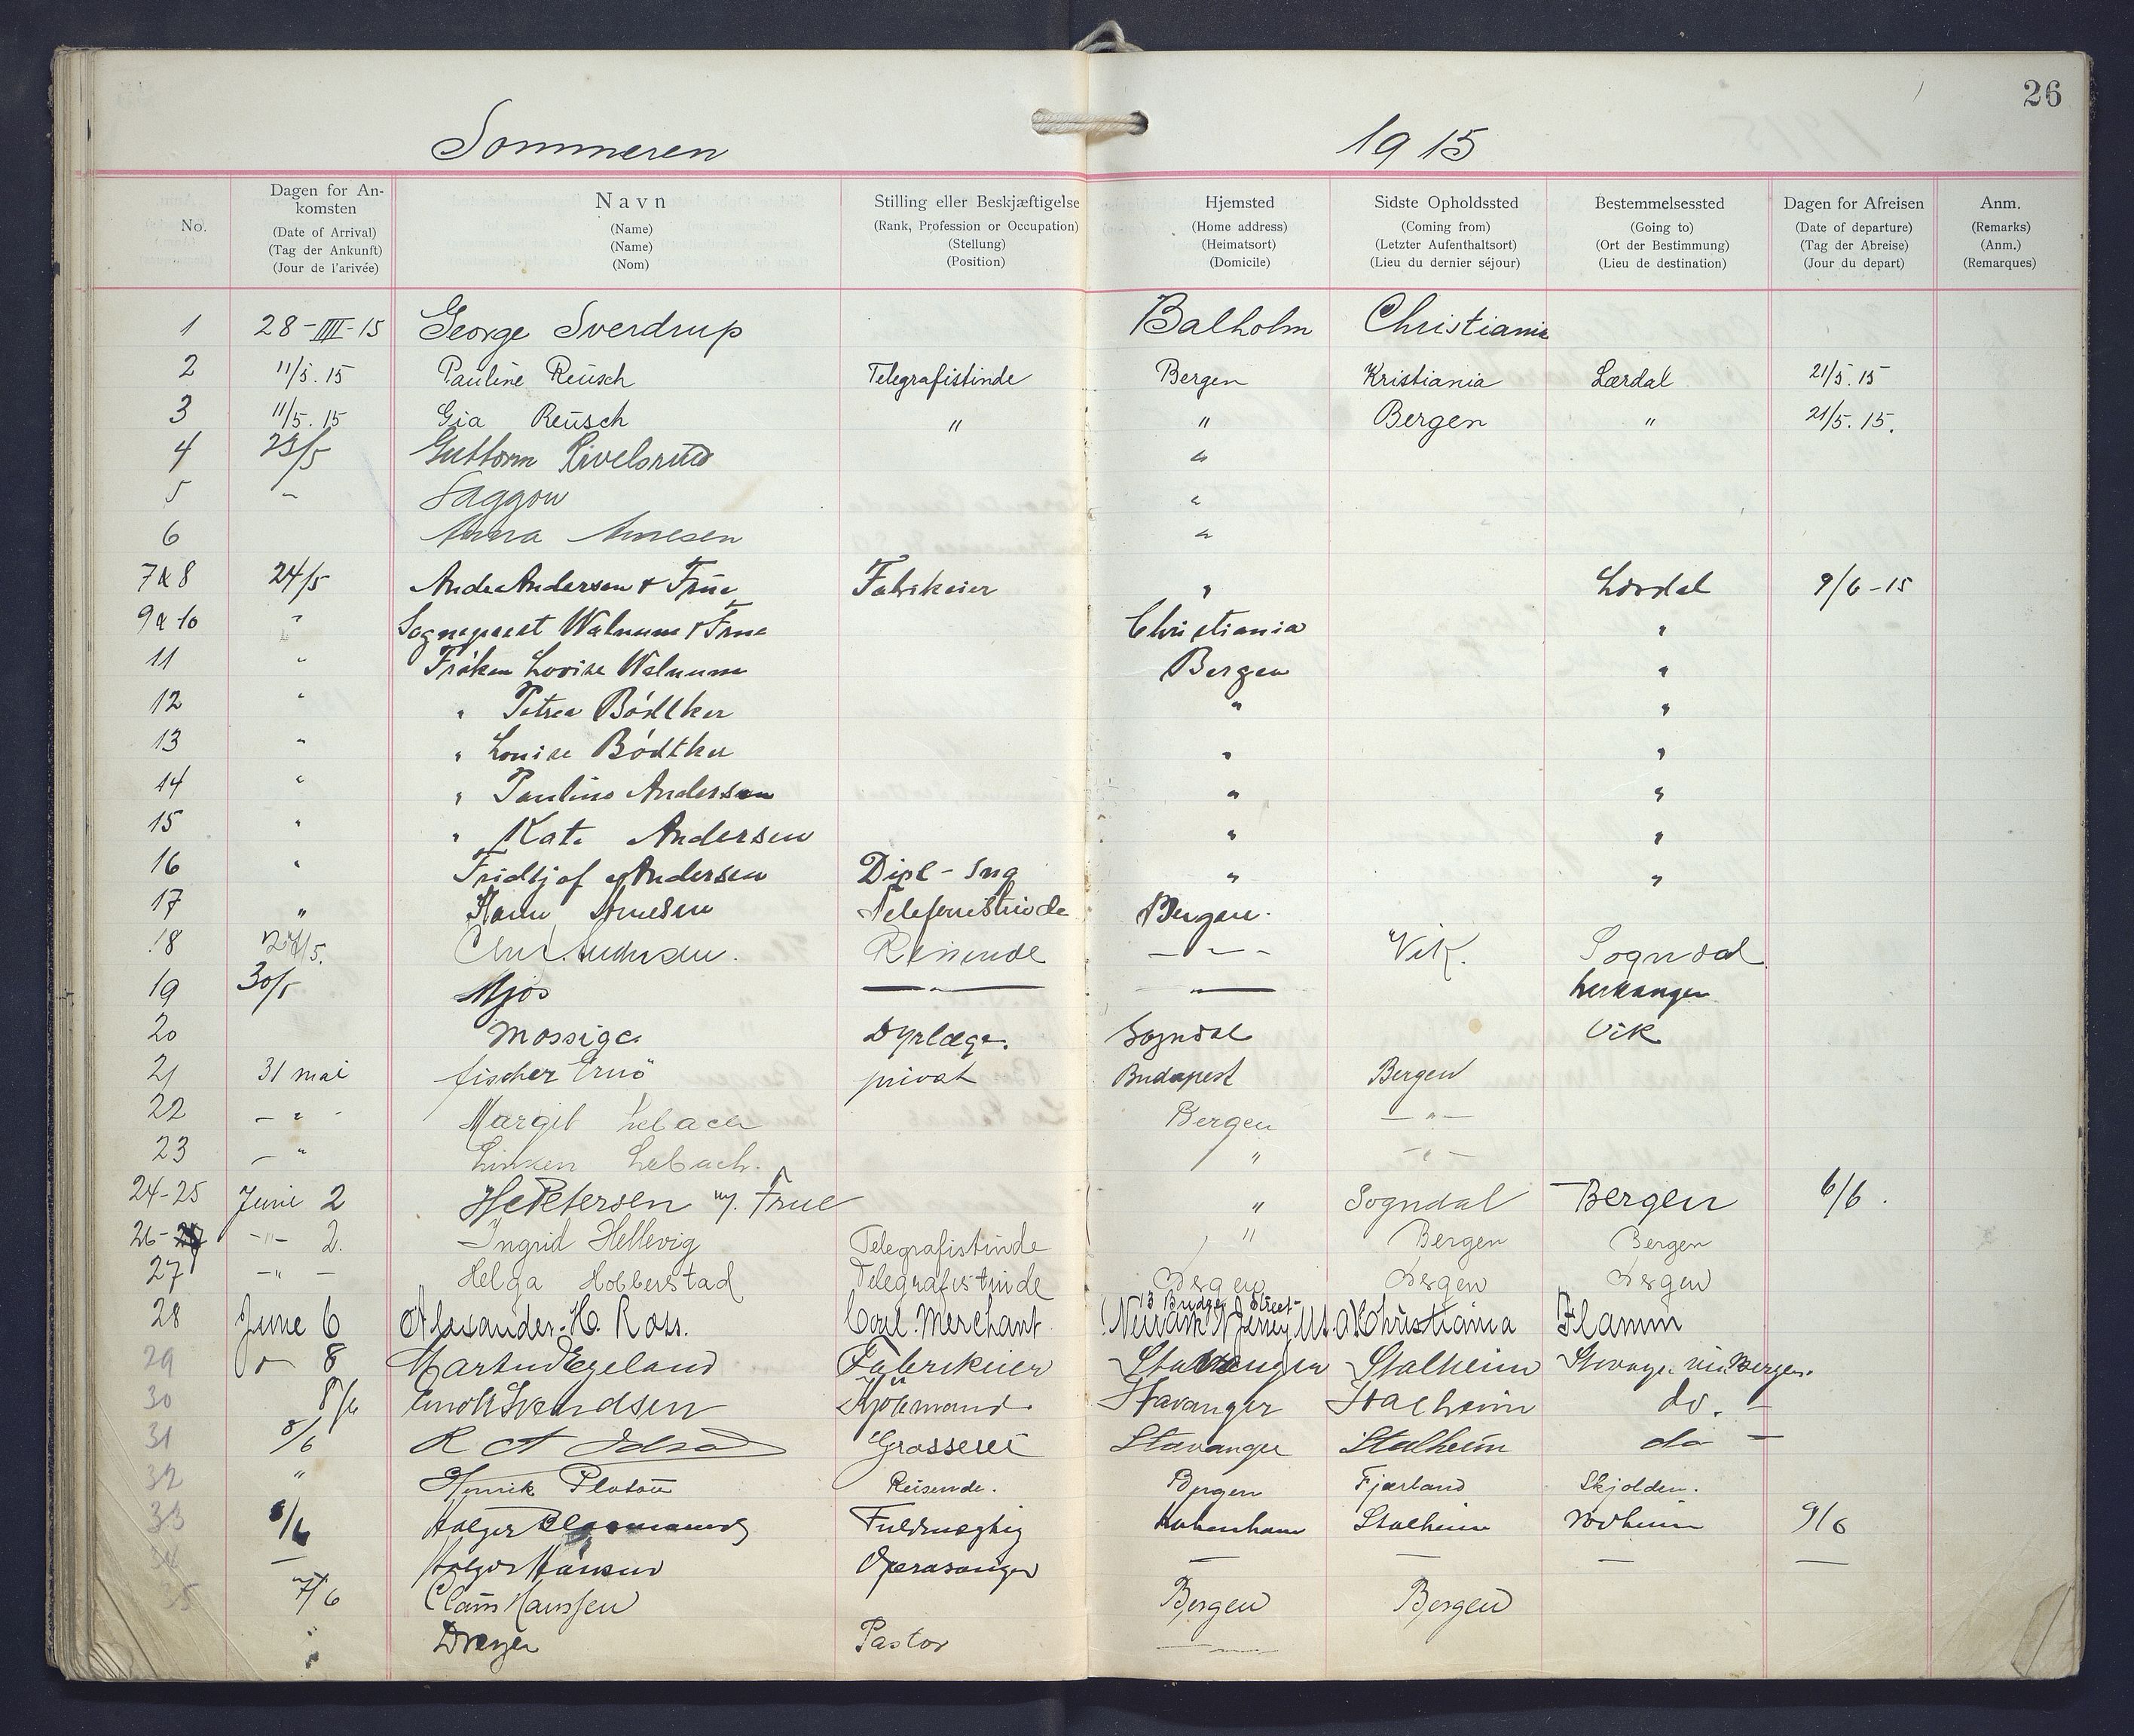 26
Sommeren 1915
No. Dagen for An-komsten Navn Stilling eller Beskjæftigelse Hjemsted Sidste Opholdssted Bestemmelsessted Dagen for Afreisen Anm.
(Date of Arrival) (Name) (Rank, Profession or Occupation) (Home address) (Coming from) (Going to) (Date of departure) (Remarks)
(Tag der Ankunft) (Name) (Stellung) (Heimatsort) (Letzter Aufenthaltsort) (Ort der Bestimmung) (Tag der Abreise) (Anm.)
(Jour de l'arivée) (Nom) (Position) (Domicile) (Lieu du dernier séjour) (Lieu de destination) (Jour du depart) (Remarques)
1 28-III-15 George Sverdrup Balholm Christiania
2 11/5.15 Pauline Reusch Telegrafistinde Bergen Kristiania Lærdal 21/5.15
3 11/5.15 Gia Reusch " " Bergen " 21/5.15.
4 23/5 Guttorm "
5 " "
6 Anna Arnesen "
7 & 8 24/5 Andersen & Frue Fabrikeier " Lærdal 9/6-15
9 & 10 " Sogneprest Walnum & Frue Christiania "
11 " Frøken Lovise Walnum Bergen "
12 " " Petrea Bødtker " "
13 " " Louise Bødtker " "
14 " " Pauline Andersen " "
15 " " Kate Andersen " "
16 " Fridtjof Andersen Dipl-Ing " "
17 " Arnesen Telefonistinde Bergen.
18 Reisende - " - Vik. Sogndal
19 30/5 Mjøs - " - - " - Leikanger
20 Mossige Dyrlæge. Sogndal Vik
21 31 mai fischer Ernö privat Budapest Bergen
22 - " - Margit Bergen - " -
23 - " Lebach. " - " -
24-25 Juni 2 Petersen m/. Frue " Sogndal Bergen 6/6.
26- - " - 2. Ingrid Hellevig Telegrafistinde " Bergen Bergen
27 - " - Helga Hobberstad Telegrafistinde Bergen Bergen Bergen
28 June 6 Alexander. H. Ross. Coal. Merchant 13 Bridge Street Newark N Jersey U.S.A Christiania Flamm
29 " 8 Martin Egeland Fabrikeier Stavanger Stalheim Stavanger via Bergen.
30 8/6 Svendsen Kjøbmand Stavanger Stalheim do. -
31 8/6 Grosserer Stavanger Stalheim do -
32 " Henrik Platou Reisende. Bergen Fjærland Skjolden.
33 8/6 Holger Fuldmægtig København Stalheim Vadheim 9/6
34 — Holger Hansen Operasanger — — — —
35 7/6 Hanssen Bergen Bergen
" Dreyer Pastor - " -